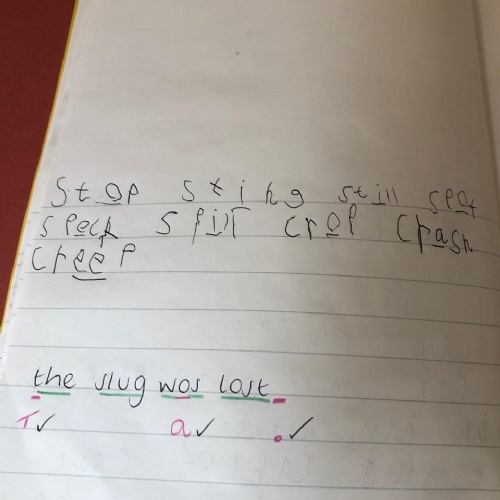 stop sting still spot
speck spill crop crash
creep
the slug was lost
T✓ a✓ .✓